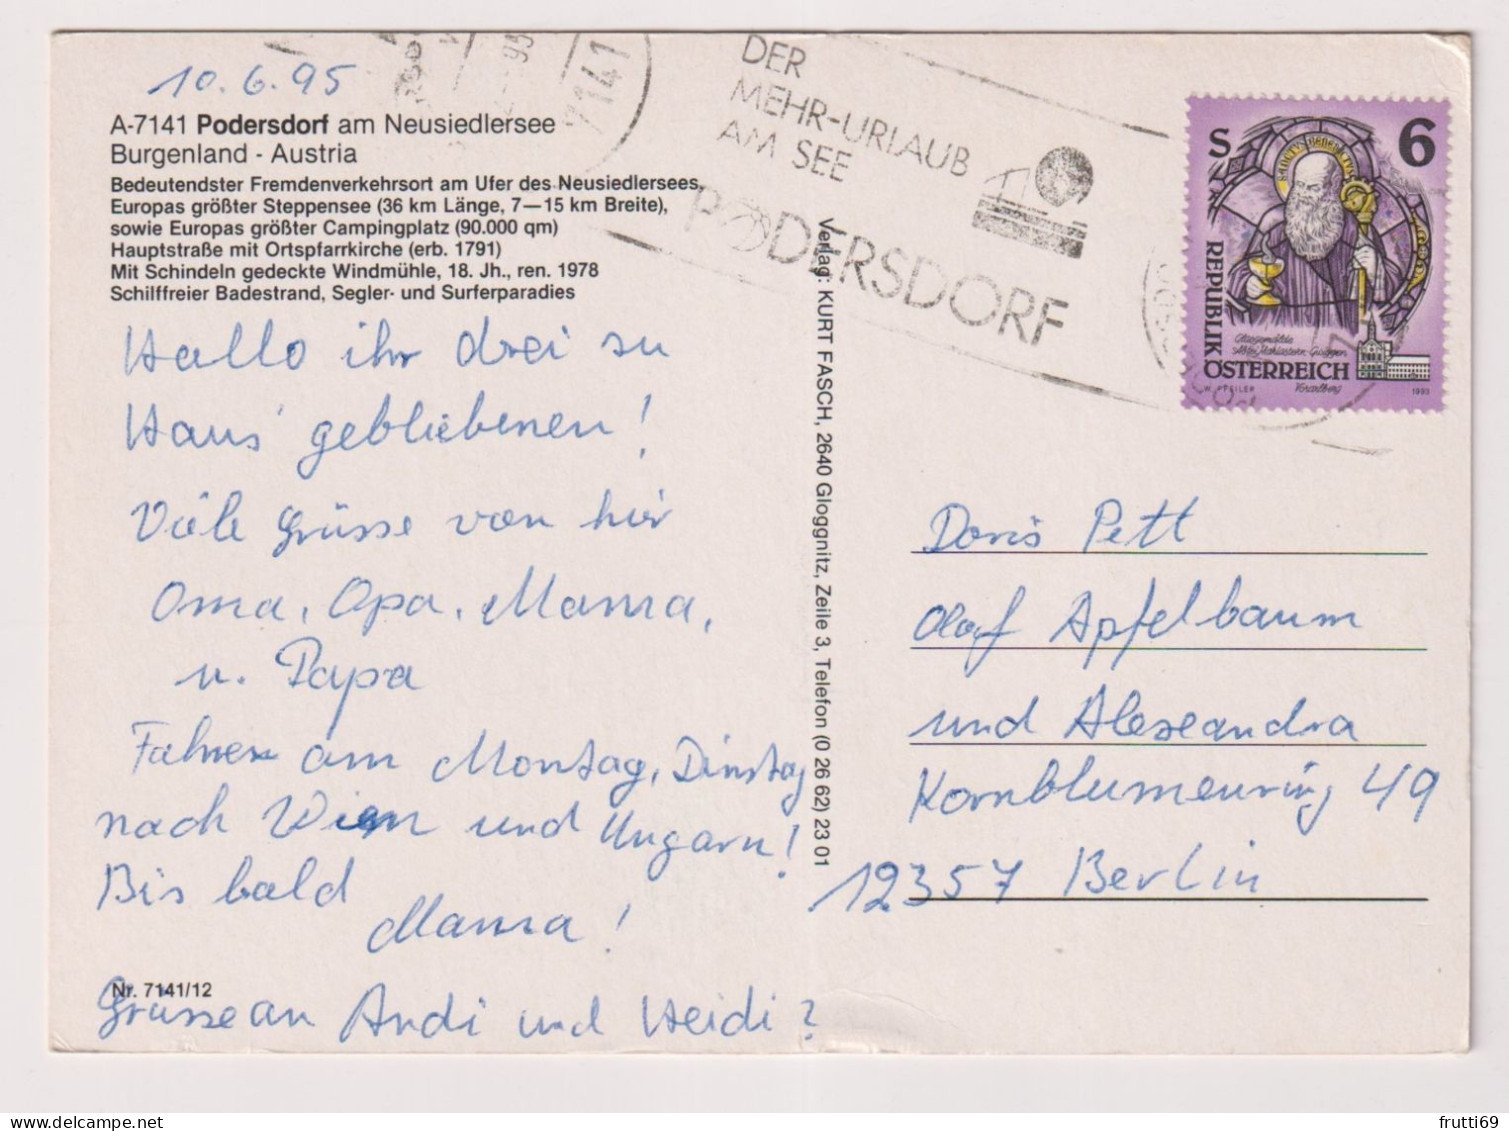 10.6.95
A-7141 Podersdorf am Neusiedlersee
Burgenland - Austria
Bedeutendster Fremdenverkehrsort am Ufer des Neusiedlersees,
Europas größter Steppensee (36 km Länge, 7—15 km Breite),
sowie Europas größter Campingplatz (90.000 qm)
Hauptstraße mit Ortspfarrkirche (erb. 1791)
Mit Schindeln gedeckte Windmühle, 18. Jh., ren. 1978
Schilffreier Badestrand, Segler- und Surferparadies
Hallo ihr drei zu
Haus gebliebenen!
Viele Grüsse von hier
Oma, Opa, Mama,
u. Papa
Fahren am Montag, Dinstag
nach Wien und Ungarn!
Bis bald
Mama!
Nr. 7141/12
Grüsse an Andi und Heidi?
Verlag: KURT FASCH, 2640 Gloggnitz, Zeile 3, Telefon (0 26 62) 23 01
7141
95
DER
MEHR-URLAUB
AM SEE
PODERSDORF
S 6
REPUBLIK
ÖSTERREICH
W. PFEILER
Vorarlberg
1993
Doris Pett
Olaf Apfelbaum
und Alexandra
Kornblumenring 49
12357 Berlin
frutti69